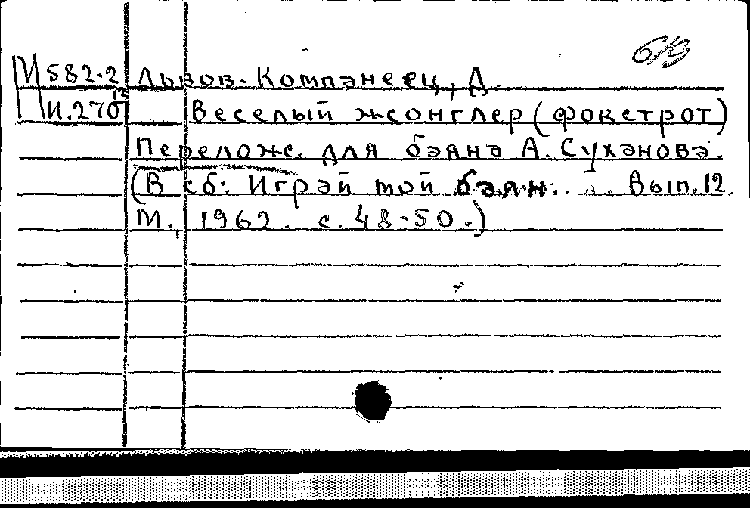 582.2 Львов-Компанеец, Д.
И.270 Веселый жонглер (фокстрот)
Перелож. для баяна А. Суханова.
(В сб: Играй мой баян... Вып.12.
М., 1962. с. 48-50.)